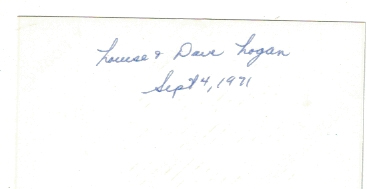 Louise & Dave Logan
Sept 4, 1971